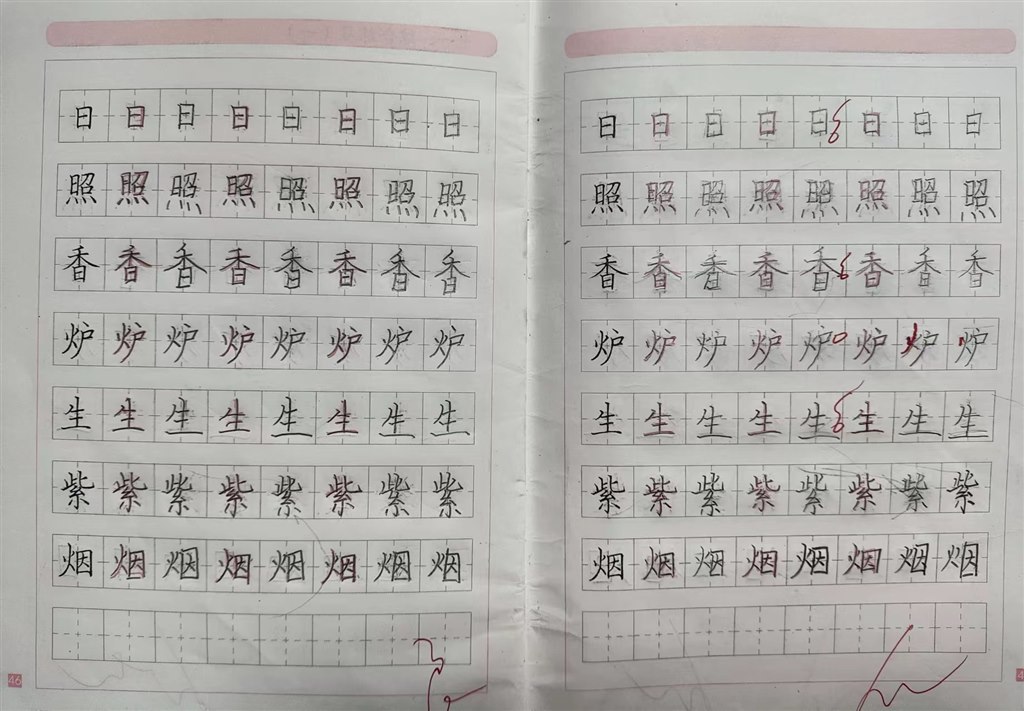 日日日日日日日日
照照照照照照照照
香香香香香香香香
炉炉炉炉炉炉炉炉
生生生生生生生生
紫紫紫紫紫紫紫紫
烟烟烟烟烟烟烟烟
46
日日日日日日日日
照照照照照照照照
香香香香香香香香
炉炉炉炉炉炉炉炉
生生生生生生生生
紫紫紫紫紫紫紫紫
烟烟烟烟烟烟烟烟